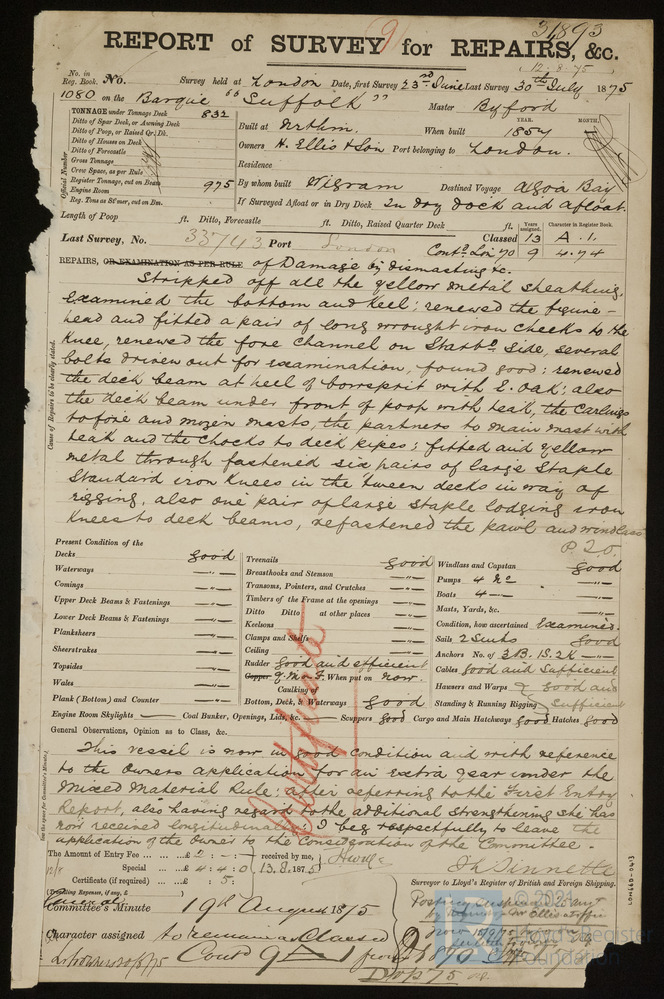 31893
9
REPORT of SURVEY for REPAIRS, &c.
12.8.75
No. in Reg. Book. No. Survey held at London Date, first Survey 23rd June Last Survey 30th July 1875
1080 on the Barque "Suffolk" Master Byford
TONNAGE under Tonnage Deck 832
Ditto of Spar Deck, or Awning Deck
Ditto of Poop, or Raised Qr. Dk.
Ditto of Houses on Deck
Ditto of Forecastle
Gross Tonnage
Crew Space, as per Rule
Register Tonnage, out on Beam 975
Engine Room
Reg. Tons as St'mer, cut on Bm.
Official Number
YEAR. MONTH.
Built at When built 1857
Owners H. Ellis & Son Port belonging to London.
Residence
By whom built Wigram Destined Voyage Algoa Bay
If Surveyed Afloat or in Dry Dock In dry dock and afloat.
Length of Poop ft. Ditto, Forecastle ft. Ditto, Raised Quarter Deck ft.
Years assigned. Character in Register Book.
Last Survey, No. 33743 Port London Classed 13 A.1.
Contd Lon 70 9 4.74
REPAIRS, OR EXAMINATION AS PER RULE of Damage by dismasting &c.
Stripped off all the yellow metal sheathing,
examined the bottom and keel; renewed the figure-
head and fitted a pair of long wrought iron cheeks to the
knee, renewed the fore channel on Starbd side, several
bolts driven out for examination, found good; renewed
the deck beam at heel of bowsprit with E. Oak; also
the deck beam under front of poop with teak, the carlings
to fore and mizen masts, the partners to main mast with
teak and the chocks to deck pipes; fitted and yellow
metal through fastened six pairs of large staple
Standard iron knees in the tween decks in way of
rigging, also one pair of large staple lodging iron
knees to deck beams, refastened the pawl and windlass
P.T.O.
Cause of Repairs to be clearly stated.
Present Condition of the
Decks good
Waterways —"—
Comings —"—
Upper Deck Beams & Fastenings —"—
Lower Deck Beams & Fastenings —"—
Planksheers —"—
Sheerstrakes —"—
Topsides —"—
Wales —"—
Plank (Bottom) and Counter —"—
Treenails good
Breasthooks and Stemson —"—
Transoms, Pointers, and Crutches —"—
Timbers of the Frame at the openings —"—
Ditto Ditto at other places —"—
Keelsons —"—
Clamps and Shelfs —"—
Ceiling —"—
Rudder good and efficient
Copper Y.M. & F. When put on now.
Caulking of
Bottom, Deck, & Waterways good
Windlass and Capstan good
Pumps 4 No —"—
Boats 4 —"—
Masts, Yards, &c. —"—
Condition, how ascertained Examined.
Sails 2 Suits good
Anchors No. of 3B. 1S. 2K —"—
Cables good and sufficient
Hawsers and Warps good and
Standing & Running Rigging sufficient
Engine Room Skylights — Coal Bunker, Openings, Lids, &c. — Scuppers good Cargo and Main Hatchways good Hatches good
General Observations, Opinion as to Class, &c.
This vessel is now in good condition and with reference
to the owners application for an extra year under the
Mixed Material Rule; after referring to the First Entry
Report, also having regard to the additional strengthening she has
now received longitudinally; I beg respectfully to leave the
application of the owner to the Consideration of the Committee.
The Amount of Entry Fee ... £ 2 : - : received by me,
Special ... £ 4 : 4 : 0 13.8.1875
Certificate (if required) ... £ : 5 :
(Travelling Expenses, if any, £ )
Surveyor to Lloyd's Register of British and Foreign Shipping.
Committee's Minute 19th August 1875
Character assigned to remain as Classed
Contd 9 A 1 from 1870
LON660-0413
© 2021
Lloyd's Register
Foundation